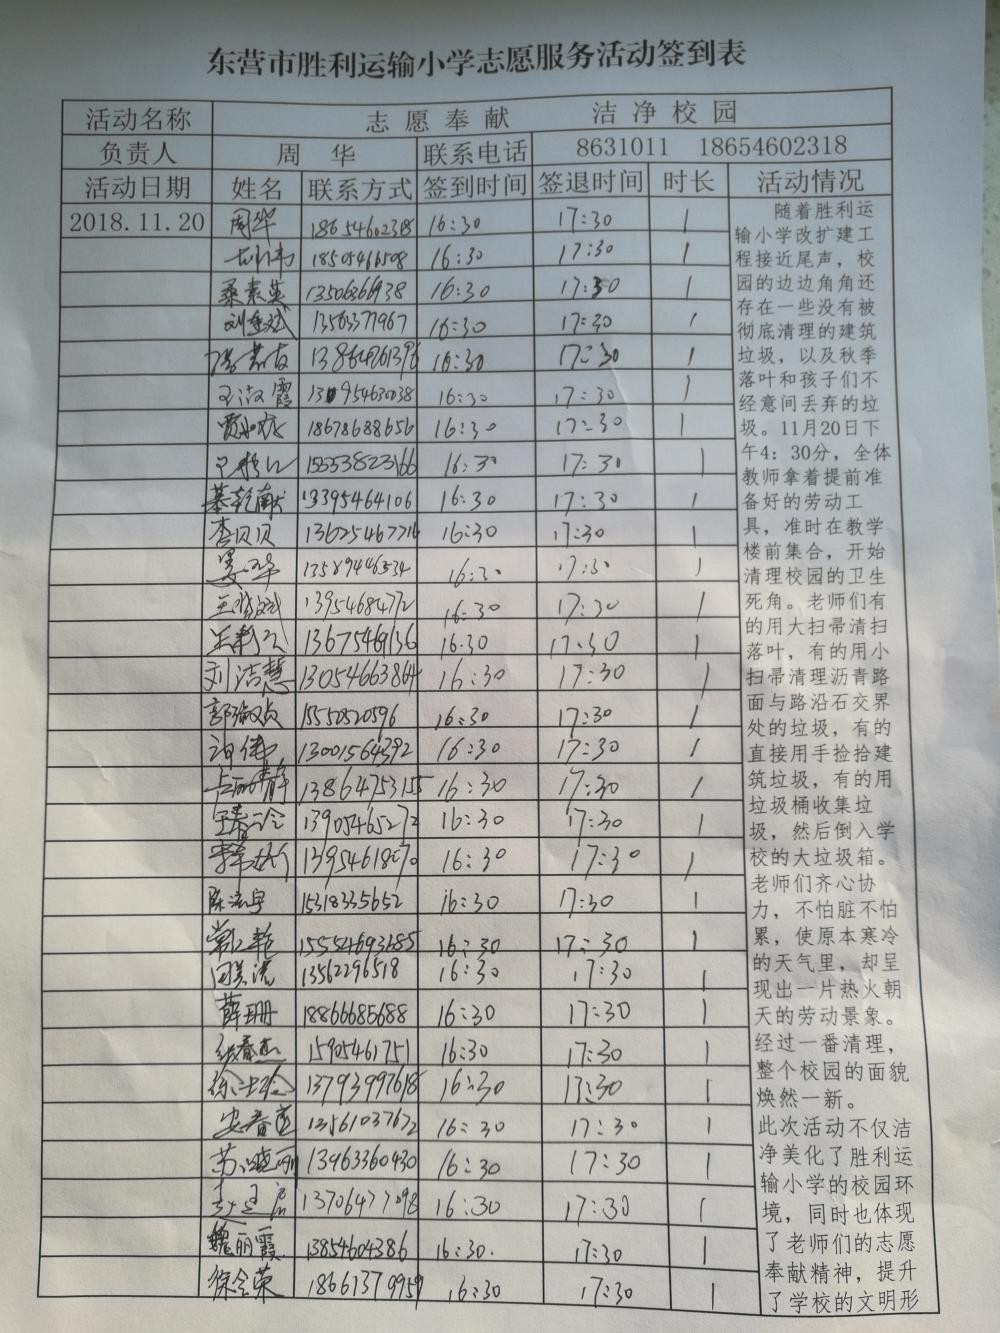 东营市胜利运输小学志愿服务活动签到表
活动名称 志愿奉献 洁净校园
负责人 周华 联系电话 8631011 18654602318
活动日期 姓名 联系方式 签到时间 签退时间 时长 活动情况
2018.11.20 周华 18654602318 16:30 17:30 1
18505466508 16:30 17:30 1
桑素英 13506366938 16:30 17:30 1
13563371967 16:30 17:30 1
16:30 17:30 1
16:30 17:30 1
18678688656 16:30 17:30 1
15553823166 16:30 17:30 1
綦乾献 13395464106 16:30 17:30 1
李贝贝 16:30 17:30 1
13589446534 16:30 17:30 1
13954684772 16:30 17:30 1
13675469136 16:30 17:30 1
刘洁慧 13054663864 16:30 17:30 1
郭淑贞 15550520596 16:30 17:30 1
13001564392 16:30 17:30 1
13864753155 16:30 17:30 1
13905465272 16:30 17:30 1
13954618070 16:30 17:30 1
15318335652 16:30 17:30 1
15554693685 16:30 17:30 1
13562296518 16:30 17:30 1
薛珊 18866685688 16:30 17:30 1
15905461751 16:30 17:30 1
13793997618 16:30 17:30 1
13561037672 16:30 17:30 1
苏晓丽 13963360430 16:30 17:30 1
13706477098 16:30 17:30 1
魏丽霞 13854604386 16:30 17:30 1
徐会荣 18661379959 16:30 17:30 1
随着胜利运
输小学改扩建工
程接近尾声，校
园的边边角角还
存在一些没有被
彻底清理的建筑
垃圾，以及秋季
落叶和孩子们不
经意间丢弃的垃
圾。11月20日下
午4：30分，全体
教师拿着提前准
备好的劳动工
具，准时在教学
楼前集合，开始
清理校园的卫生
死角。老师们有
的用大扫帚清扫
落叶，有的用小
扫帚清理沥青路
面与路沿石交界
处的垃圾，有的
直接用手捡拾建
筑垃圾，有的用
垃圾桶收集垃
圾，然后倒入学
校的大垃圾箱。
老师们齐心协
力，不怕脏不怕
累，使原本寒冷
的天气里，却呈
现出一片热火朝
天的劳动景象。
经过一番清理，
整个校园的面貌
焕然一新。
此次活动不仅洁
净美化了胜利运
输小学的校园环
境，同时也体现
了老师们的志愿
奉献精神，提升
了学校的文明形